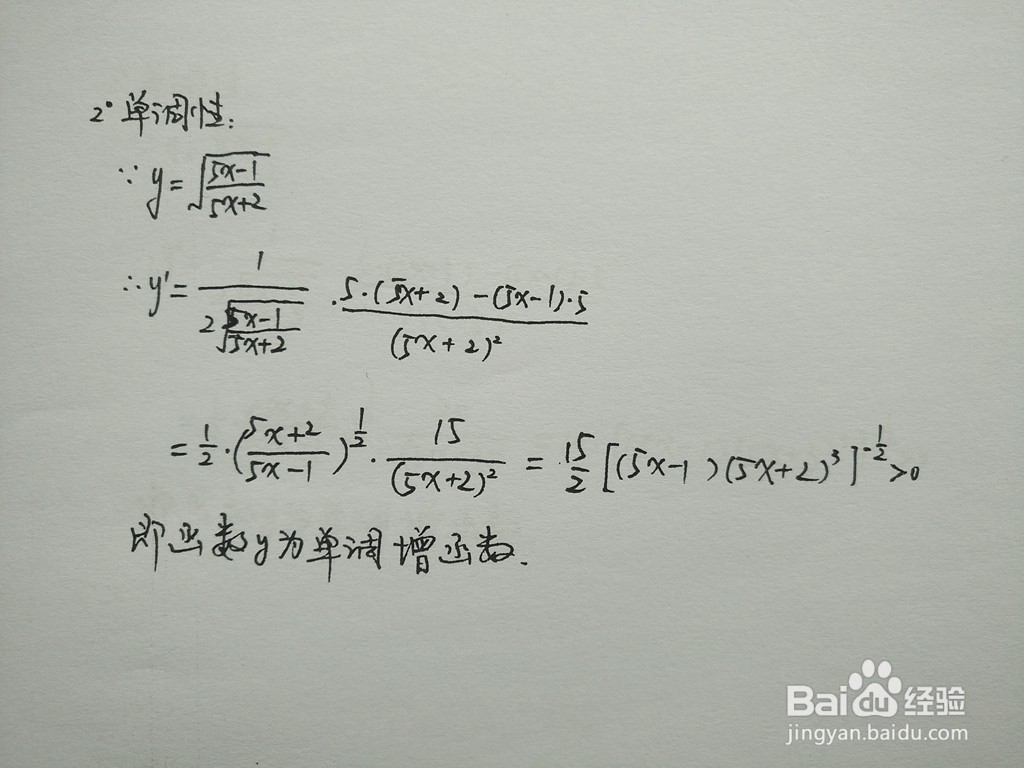 2° 单调性:
∵ y = √((5x-1)/(5x+2))
∴ y' = 1/(2√((5x-1)/(5x+2))) · (5·(5x+2) - (5x-1)·5)/((5x+2)²)
= 1/2 · ((5x+2)/(5x-1))^(1/2) · 15/((5x+2)²) = 15/2 [(5x-1)(5x+2)³]^(-1/2) > 0
即函数y为单调增函数.
Baidu 经验
jingyan.baidu.com